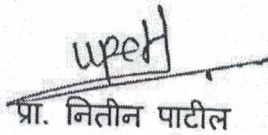 प्रा. नितीन पाटील